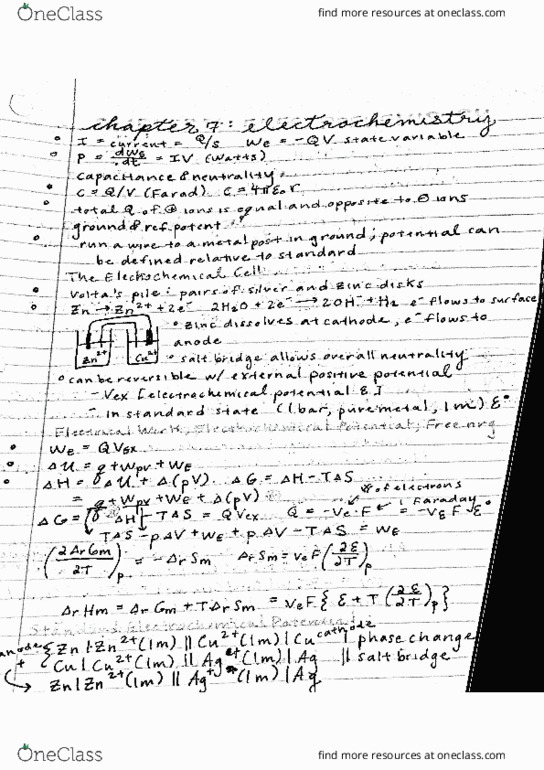 OneClass
find more resources at oneclass.com
chapter 7: electrochemistry
• I = current = Q/s We = -QV state variable
• P = dwe/dt = IV (Watts)
capacitance & neutrality
• C = Q/V (Farad) C = 4πε₀r
• total Q of ⊕ ions is equal and opposite to ⊖ ions
ground & ref. potent
• run a wire to a metal post in ground; potential can
be defined relative to standard
The Electrochemical Cell
• Volta's pile: pairs of silver and zinc disks
• Zn → Zn²⁺ + 2e⁻ 2H₂O + 2e⁻ → 2OH⁻ + H₂ e⁻ flows to surface
• zinc dissolves at cathode, e⁻ flows to
anode
Zn²⁺ Cu²⁺
• salt bridge allows overall neutrality
• can be reversible w/ external positive potential
- Vex [electrochemical potential ℰ]
- in standard state (1 bar, pure metal, 1m) ℰ°
Electrical Work, Electrochemical Potential, Free nrg
• WE = QVex
• ΔU = q + wpv + wE
• ΔH = ΔU + Δ(pV) ΔG = ΔH - TΔS
= q + wpv + wE + Δ(pV) # of electrons
ΔG = ΔH - TΔS = QVex Q = -Ve·F Faraday = -VeFℰ°
TΔS - pΔV + wE + pΔV - TΔS = wE
(∂ΔrGm/∂T)p = -ΔrSm ΔrSm = veF(∂ℰ/∂T)p
ΔrHm = ΔrGm + TΔrSm = veF{ℰ + T(∂ℰ/∂T)p}
Standard Electrochemical Potential
anode { Zn | Zn²⁺(1m) || Cu²⁺(1m) | Cu cathode | phase change
+ Cu | Cu²⁺(1m) || Ag⁺(1m) | Ag || salt bridge
→ Zn | Zn²⁺(1m) || Ag⁺(1m) | Ag
OneClass
find more resources at oneclass.com